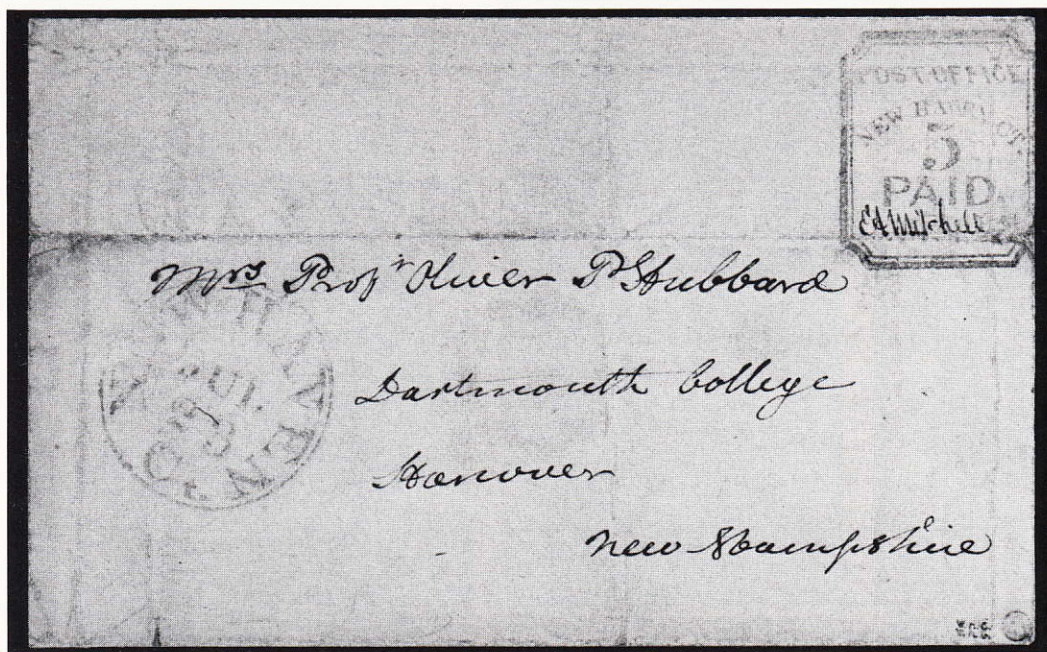 POST OFFICE
NEW HAVEN, CT.
5
PAID
E A Mitchell
Mrs Profr Oliver P Hubbard
NEW HAVEN
JUL
Ct.
Dartmouth College
Hanover
New Hampshire